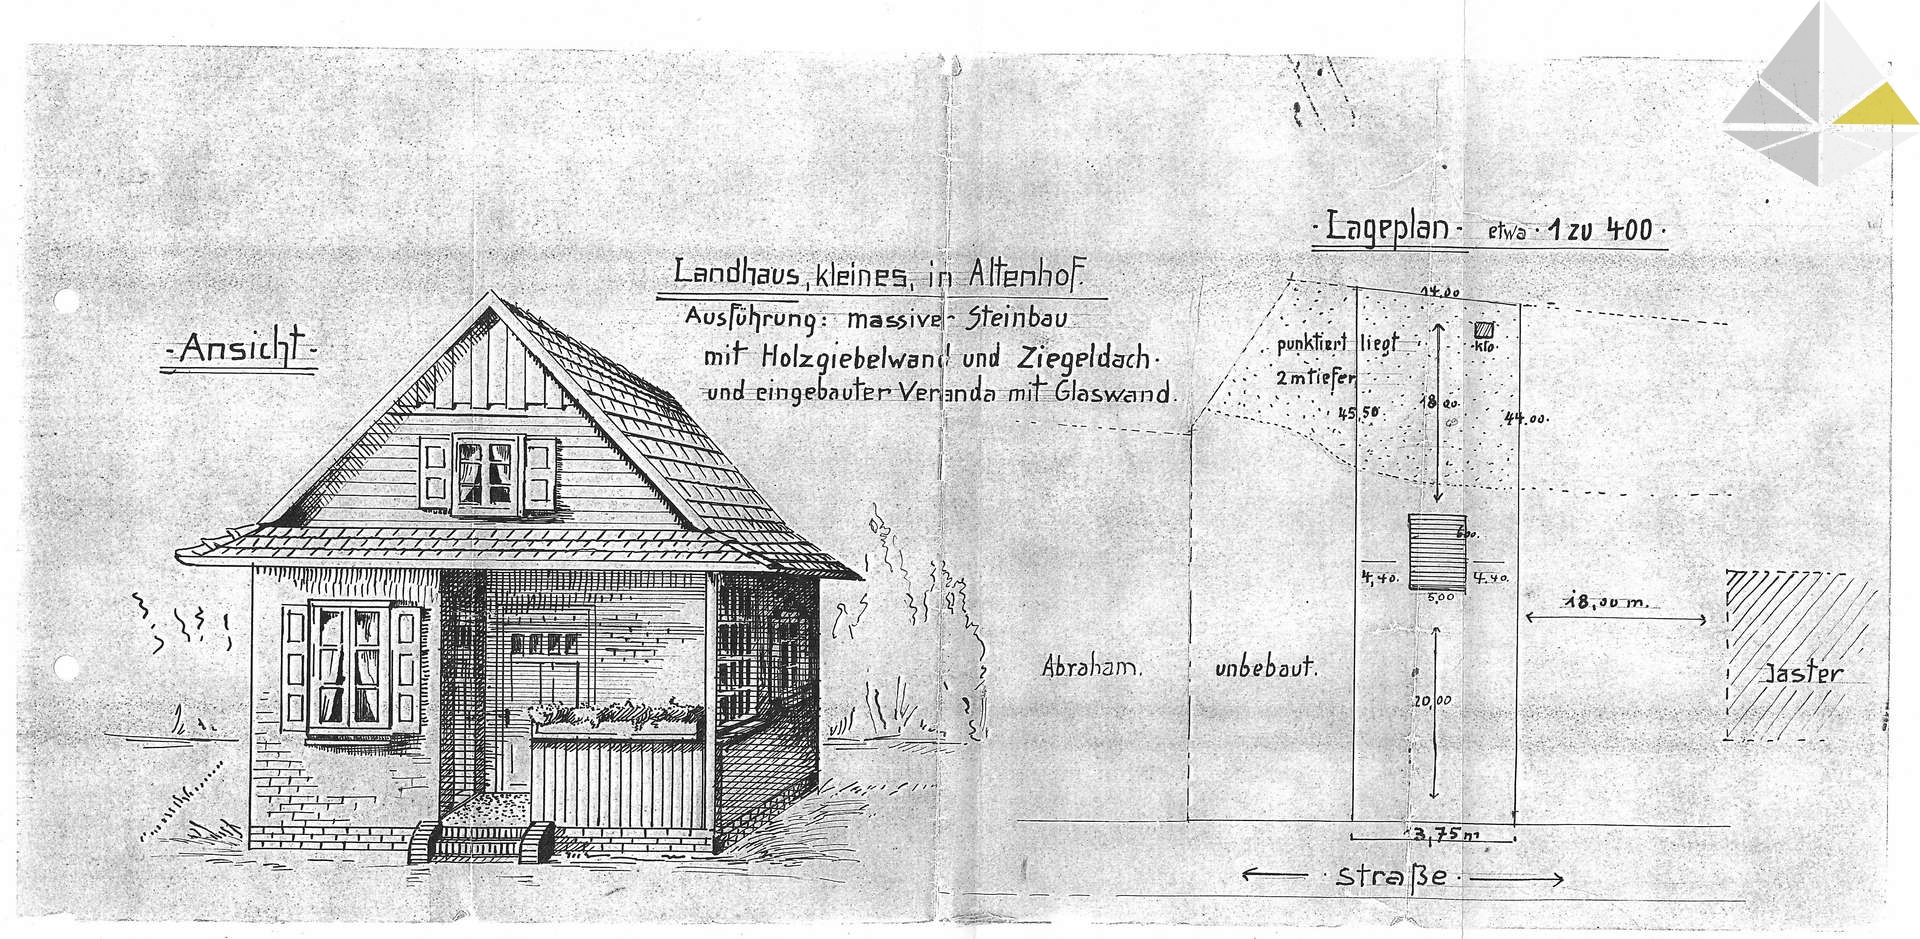 ·Ansicht·
Landhaus, kleines, in Altenhof.
Ausführung: massiver Steinbau
mit Holzgiebelwand und Ziegeldach·
und eingebauter Veranda mit Glaswand.
·Lageplan· etwa · 1 zu 400 ·
14,00
punktiert liegt
2 m tiefer
klo.
45,50.
18,00.
44,00.
6,00.
4,40.
4,40.
5,00
18,00 m.
Abraham.
unbebaut.
Jaster
20,00
13,75 m
· Straße ·